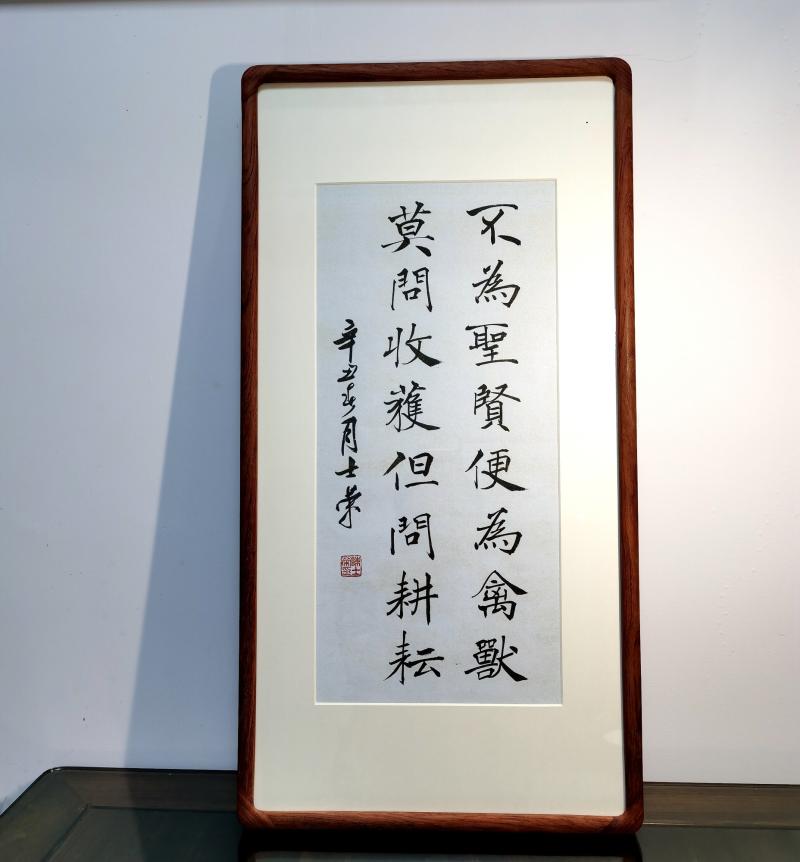 不為聖賢便為禽獸
莫問收穫但問耕耘
辛丑春月士荣